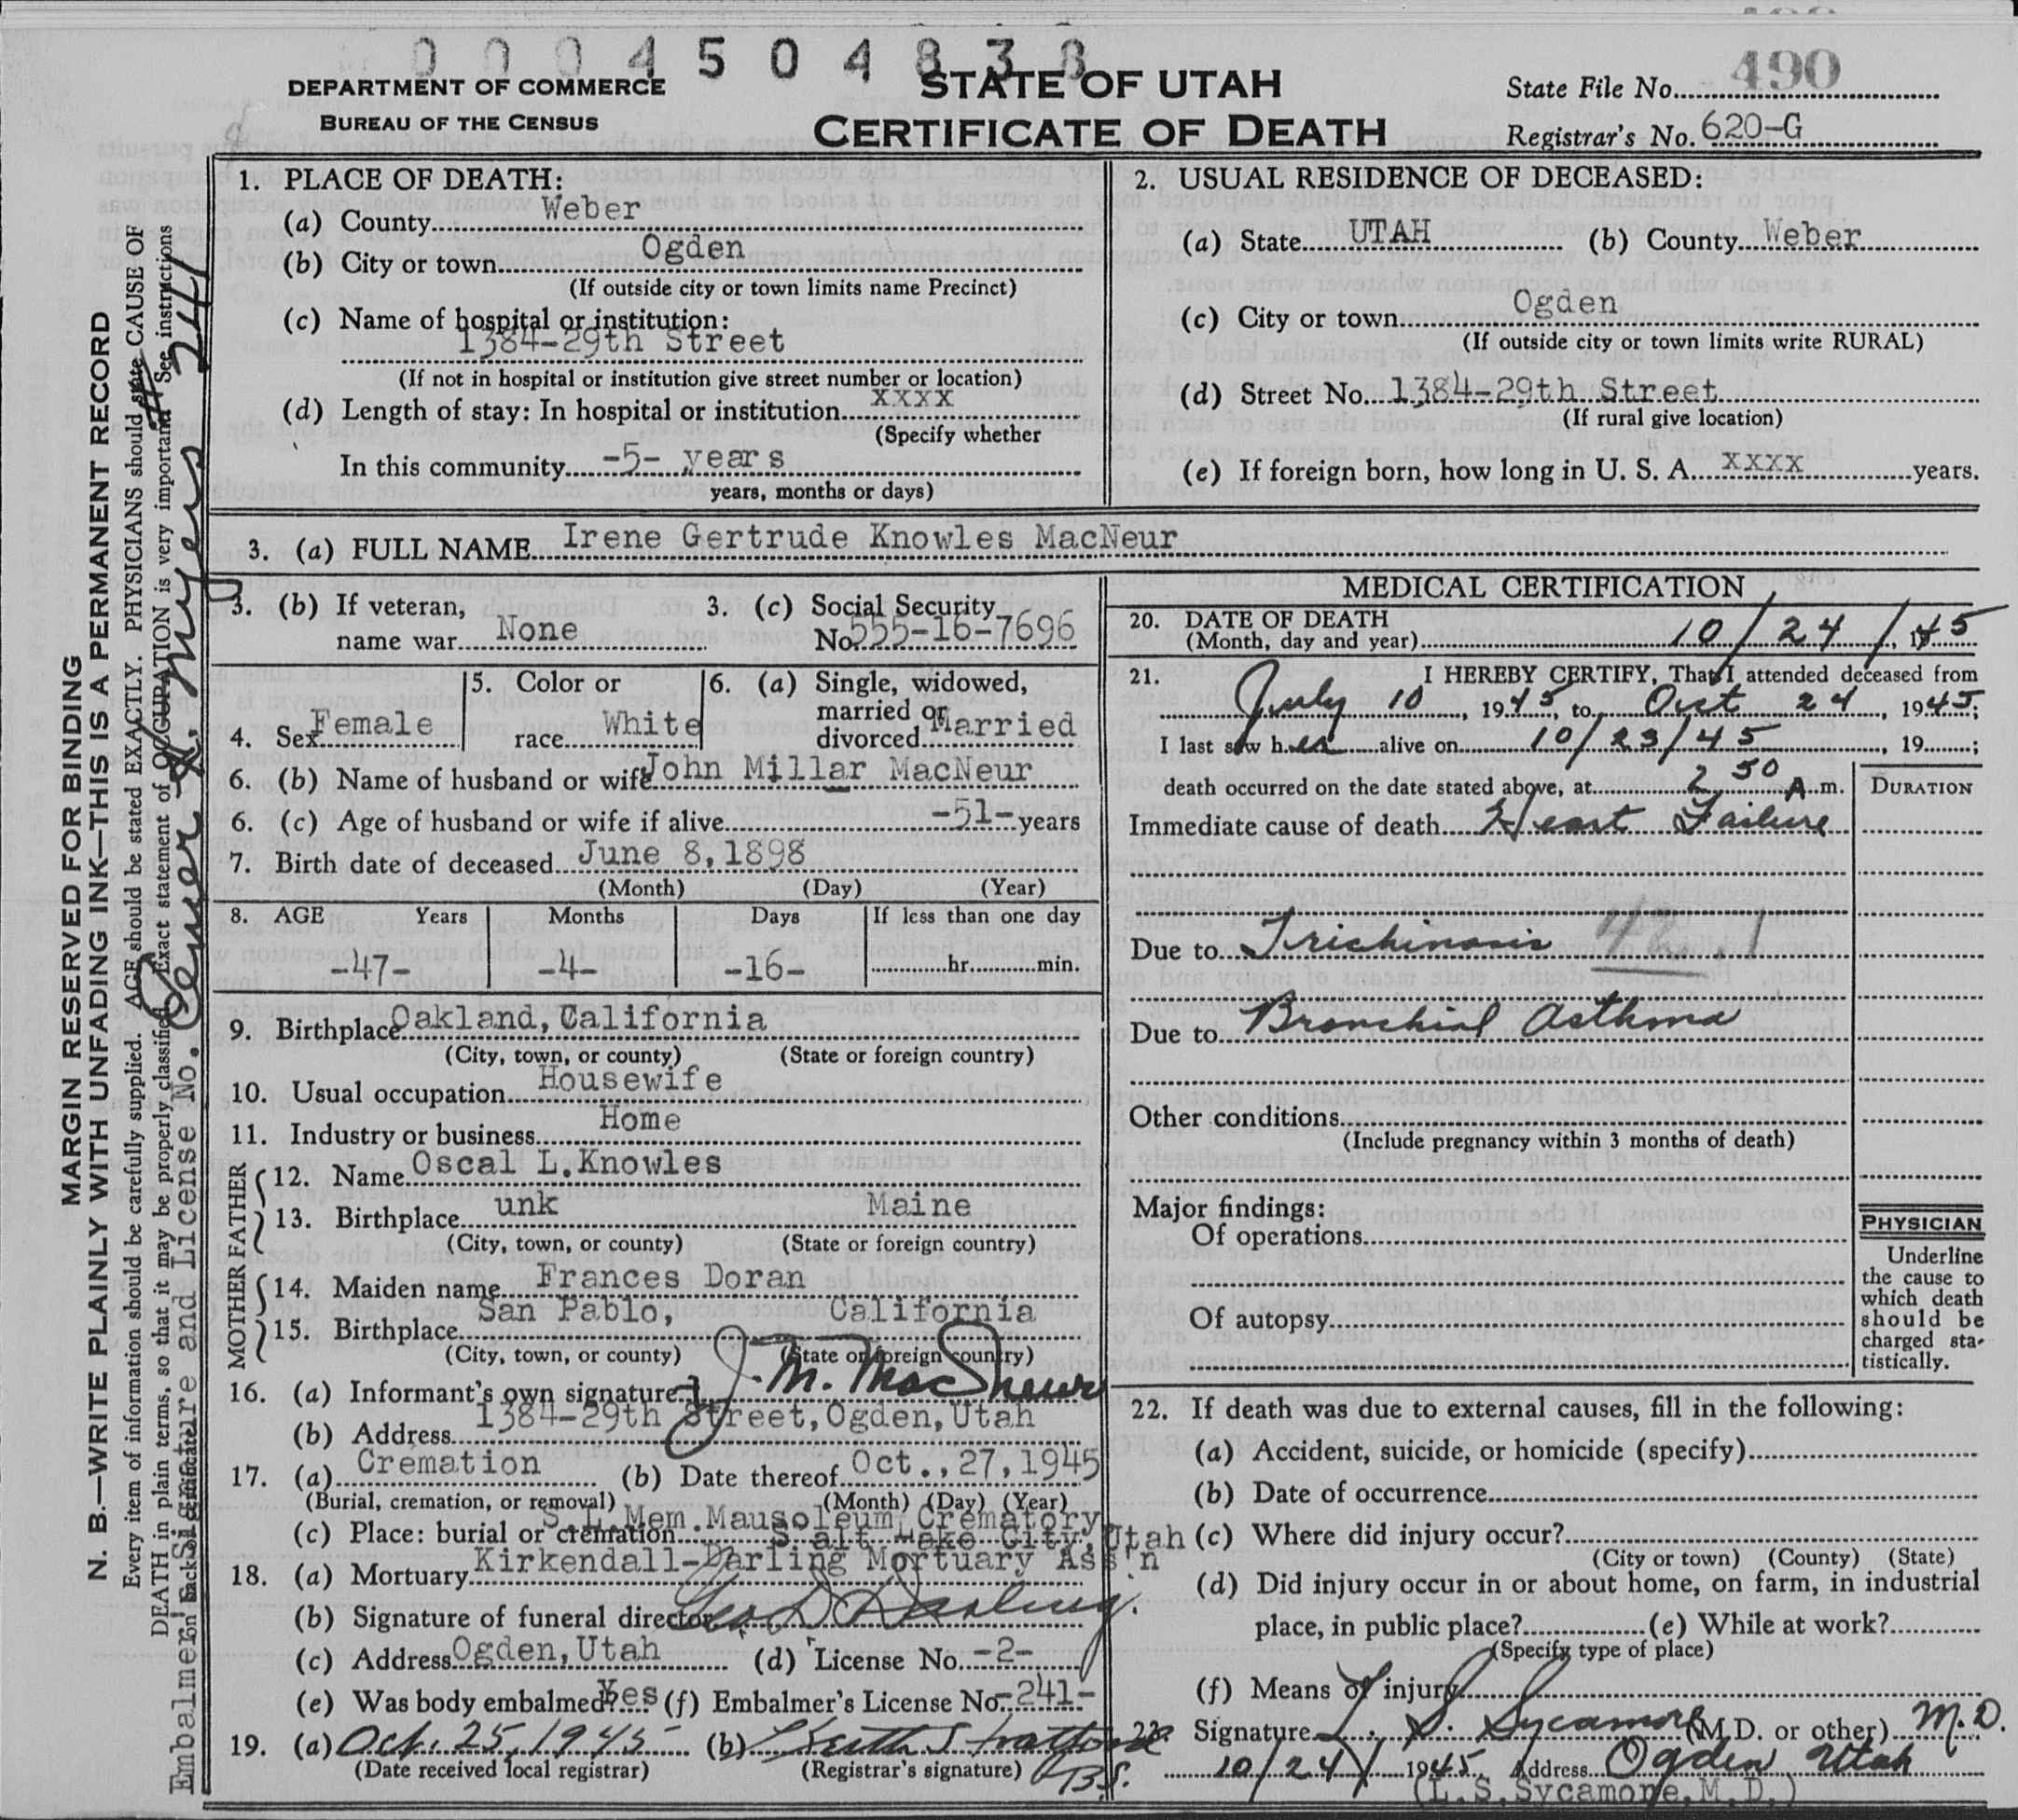 0004504838
DEPARTMENT OF COMMERCE
BUREAU OF THE CENSUS
STATE OF UTAH
CERTIFICATE OF DEATH
State File No. 490
Registrar's No. 620-G
1. PLACE OF DEATH:
(a) County Weber
(b) City or town Ogden
(If outside city or town limits name Precinct)
(c) Name of hospital or institution:
1384-29th Street
(If not in hospital or institution give street number or location)
(d) Length of stay: In hospital or institution xxxx
(Specify whether
In this community -5- years
years, months or days)
2. USUAL RESIDENCE OF DECEASED:
(a) State UTAH (b) County Weber
(c) City or town Ogden
(If outside city or town limits write RURAL)
(d) Street No. 1384-29th Street
(If rural give location)
(e) If foreign born, how long in U. S. A. xxxx years.
3. (a) FULL NAME Irene Gertrude Knowles MacNeur
3. (b) If veteran,
name war None
3. (c) Social Security
No. 555-16-7696
4. Sex Female
5. Color or
race White
6. (a) Single, widowed,
married or
divorced Married
6. (b) Name of husband or wife John Millar MacNeur
6. (c) Age of husband or wife if alive -51- years
7. Birth date of deceased June 8, 1898
(Month) (Day) (Year)
8. AGE Years Months Days If less than one day
-47- -4- -16- hr. min.
9. Birthplace Oakland, California
(City, town, or county) (State or foreign country)
10. Usual occupation Housewife
11. Industry or business Home
FATHER
12. Name Oscal L. Knowles
13. Birthplace unk Maine
(City, town, or county) (State or foreign country)
MOTHER
14. Maiden name Frances Doran
15. Birthplace San Pablo, California
(City, town, or county) (State or foreign country)
16. (a) Informant's own signature J. M. MacNeur
(b) Address 1384-29th Street, Ogden, Utah
17. (a) Cremation (b) Date thereof Oct., 27, 1945
(Burial, cremation, or removal) (Month) (Day) (Year)
(c) Place: burial or cremation S.L. Mem. Mausoleum Crematory
Salt Lake City, Utah
18. (a) Mortuary Kirkendall-Darling Mortuary Ass'n
(b) Signature of funeral director Geo D Darling
(c) Address Ogden, Utah (d) License No. -2-
(e) Was body embalmed? Yes (f) Embalmer's License No. -241-
19. (a) Oct. 25, 1945 (b) Keith Stratford
(Date received local registrar) (Registrar's signature) BS.
MEDICAL CERTIFICATION
20. DATE OF DEATH
(Month, day and year) 10/24/, 1945
21. I HEREBY CERTIFY, That I attended deceased from
July 10, 1945, to Oct 24, 1945;
I last saw her alive on 10/23/45, 19 ;
death occurred on the date stated above, at 2 50 A. m.
DURATION
Immediate cause of death Heart Failure
Due to Trichinosis 42.1
Due to Bronchial Asthma
Other conditions
(Include pregnancy within 3 months of death)
Major findings:
Of operations
Of autopsy
PHYSICIAN
Underline
the cause to
which death
should be
charged sta-
tistically.
22. If death was due to external causes, fill in the following:
(a) Accident, suicide, or homicide (specify)
(b) Date of occurrence
(c) Where did injury occur?
(City or town) (County) (State)
(d) Did injury occur in or about home, on farm, in industrial
place, in public place? (e) While at work?
(Specify type of place)
(f) Means of injury
23. Signature L. S. Sycamore (M.D. or other) M.D.
10/24/ 1945 Address Ogden Utah
(L.S. Sycamore, M.D.)
MARGIN RESERVED FOR BINDING
N. B.—WRITE PLAINLY WITH UNFADING INK—THIS IS A PERMANENT RECORD
Every item of information should be carefully supplied. AGE should be stated EXACTLY. PHYSICIANS should state CAUSE OF
DEATH in plain terms, so that it may be properly classified. Exact statement of OCCUPATION is very important. See instructions
on back of certificate.
Embalmer's Signature and License No. # 241